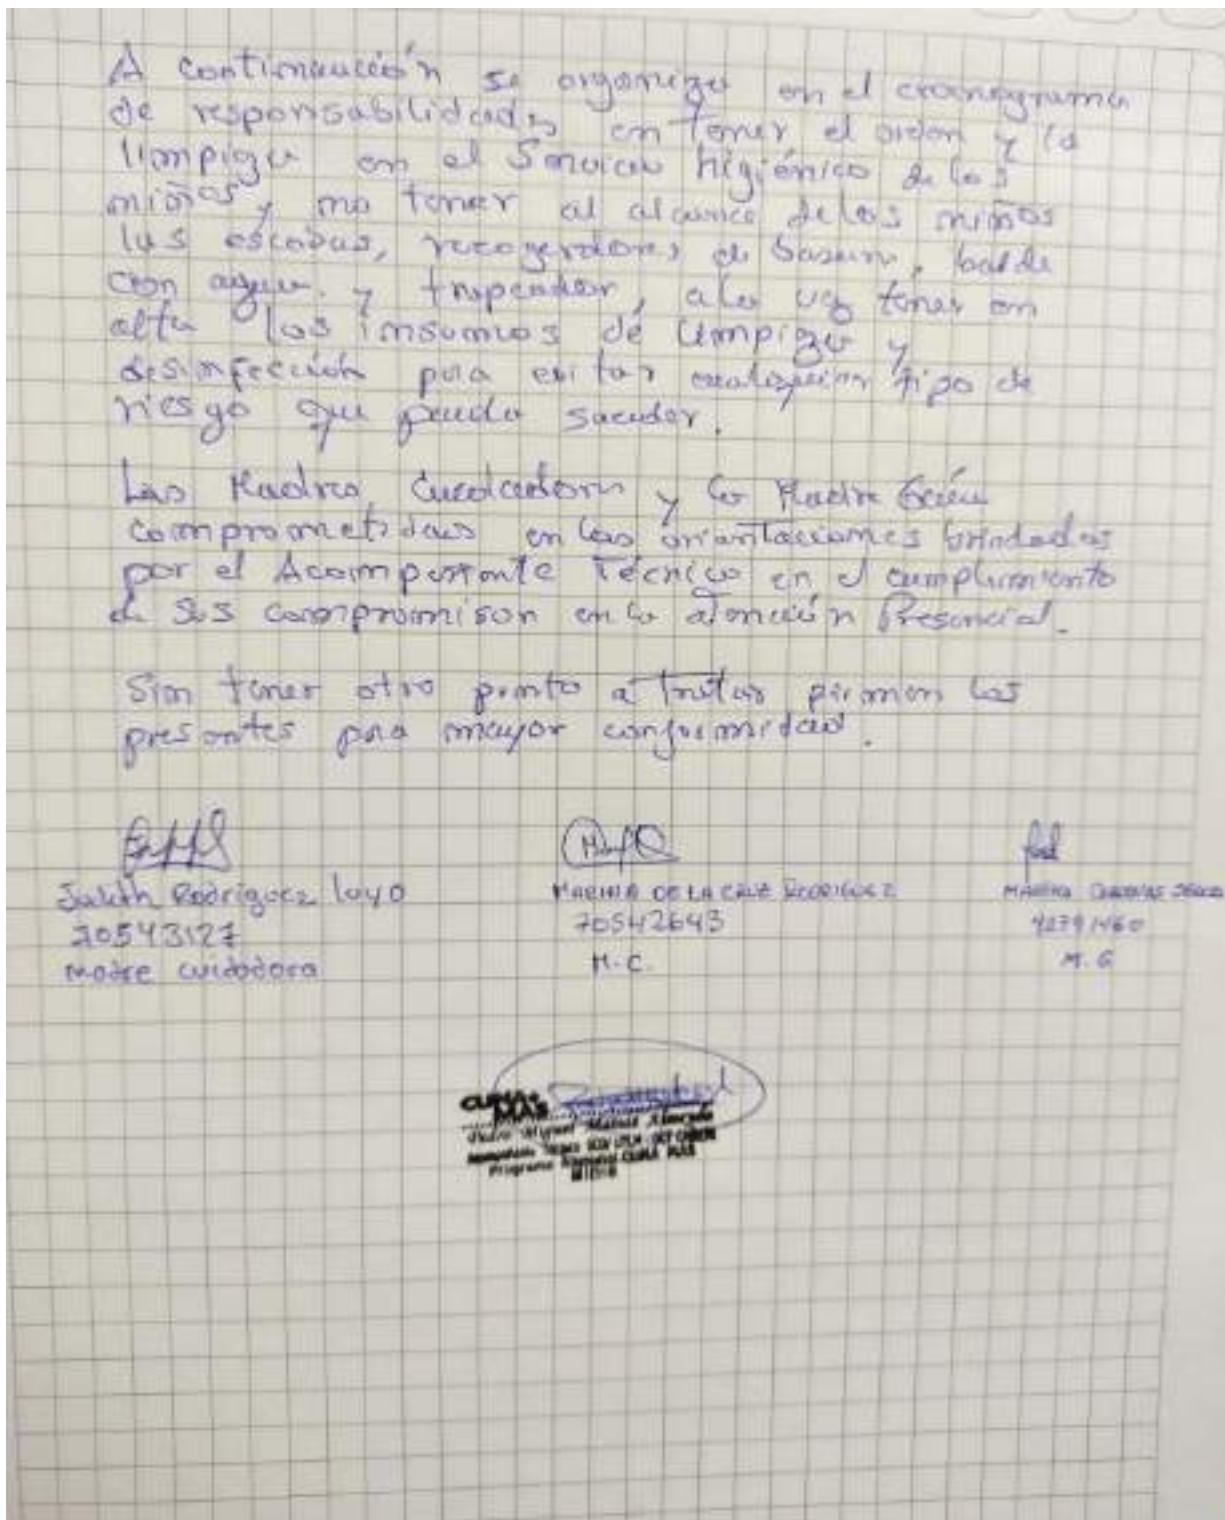 A continuación se organiza en el cronograma
de responsabilidades en tener el orden y la
limpieza en el Servicio higiénico de los
niños, y no tener al alcance de los niños
las escobas, recogedores de basura, balde
con agua. y trapeador, a la vez tener en
alto los insumos de limpieza y
desinfección para evitar cualquier tipo de
riesgo que pueda suceder.
Las Madres Cuidadora y la Madre Guía
comprometidas en las orientaciones brindadas
por el Acompañante Técnico en el cumplimiento
de sus compromisos en la atención Presencial.
Sin tener otro punto a tratar firman los
presentes para mayor conformidad.
Judith Rodriguez Loyo
70543127
Madre cuidadora
MARINA DE LA CRUZ RODRIGUEZ
70542643
M.C.
MARINA CARDENAS
42791460
M.G
CUNA MAS
Pedro Miguel
Programa Nacional CUNA MAS
MIDIS